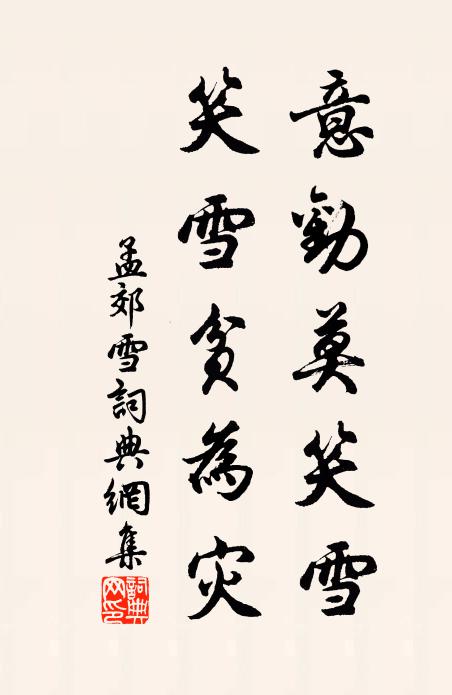 意勸莫笑雪
笑雪貧為灾
孟郊雪詞典網集
詞典网印